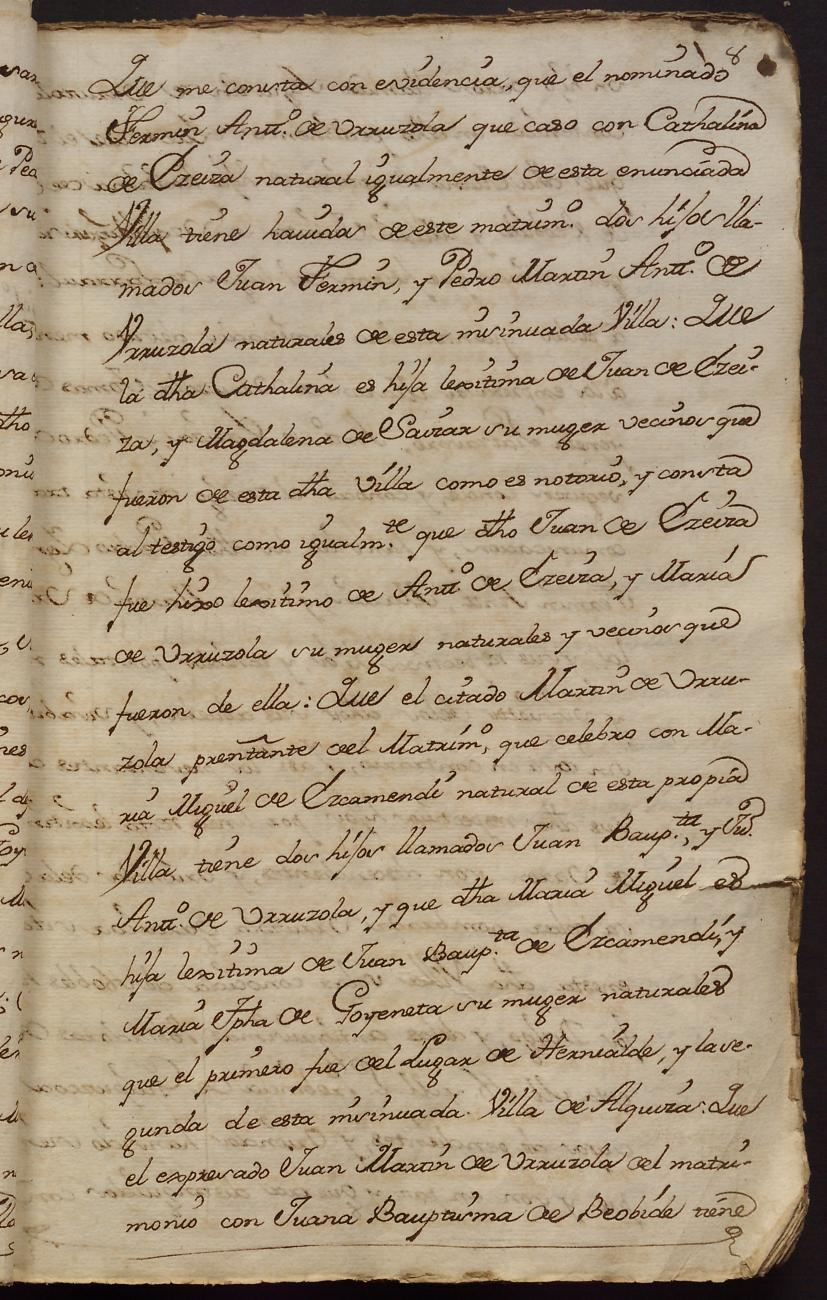 8
Que me consta con evidencia, que el nominado
Fermin Antt.º de Urruzola que caso con Cathalina
de Ezeiza natural igualmente de esta enunciada
Villa tiene hauidos de este matrim.º dos hijos lla-
mados Juan Fermin, y Pedro Martin Antt.º de
Urruzola naturales de esta insinuada Villa: Que
la dha Cathalina es hija lexitima de Juan de Ezei-
za, y Magdalena de Saizar su muger vecinos que
fueron de esta dha Villa como es notorio, y consta
al testigo como igualm.te que dho Juan de Ezeiza
fue hixo lexitimo de Antt.º de Ezeiza, y Maria
de Urruzola su muger naturales y vecinos que
fueron de ella: Que el citado Martin de Urru-
zola del Matrim.º, que celebro con Ma-
ria Miguel de Ezcamendi natural de esta propia
Villa tiene dos hijos llamados Juan Baup.ta, y Ju.º
Antt.º de Urruzola, y que dha Maria Miguel es
hija lexitima de Juan Baup.ta de Ezcamendi, y
Maria Jpha de Goyeneta su muger naturales
que el primero fue del Lugar de Hernialde, y la se-
gunda de esta insinuada Villa de Alquiza: Que
el expresado Juan Martin de Urruzola del matri-
monio con Juana Bauptisma de Beobide tiene